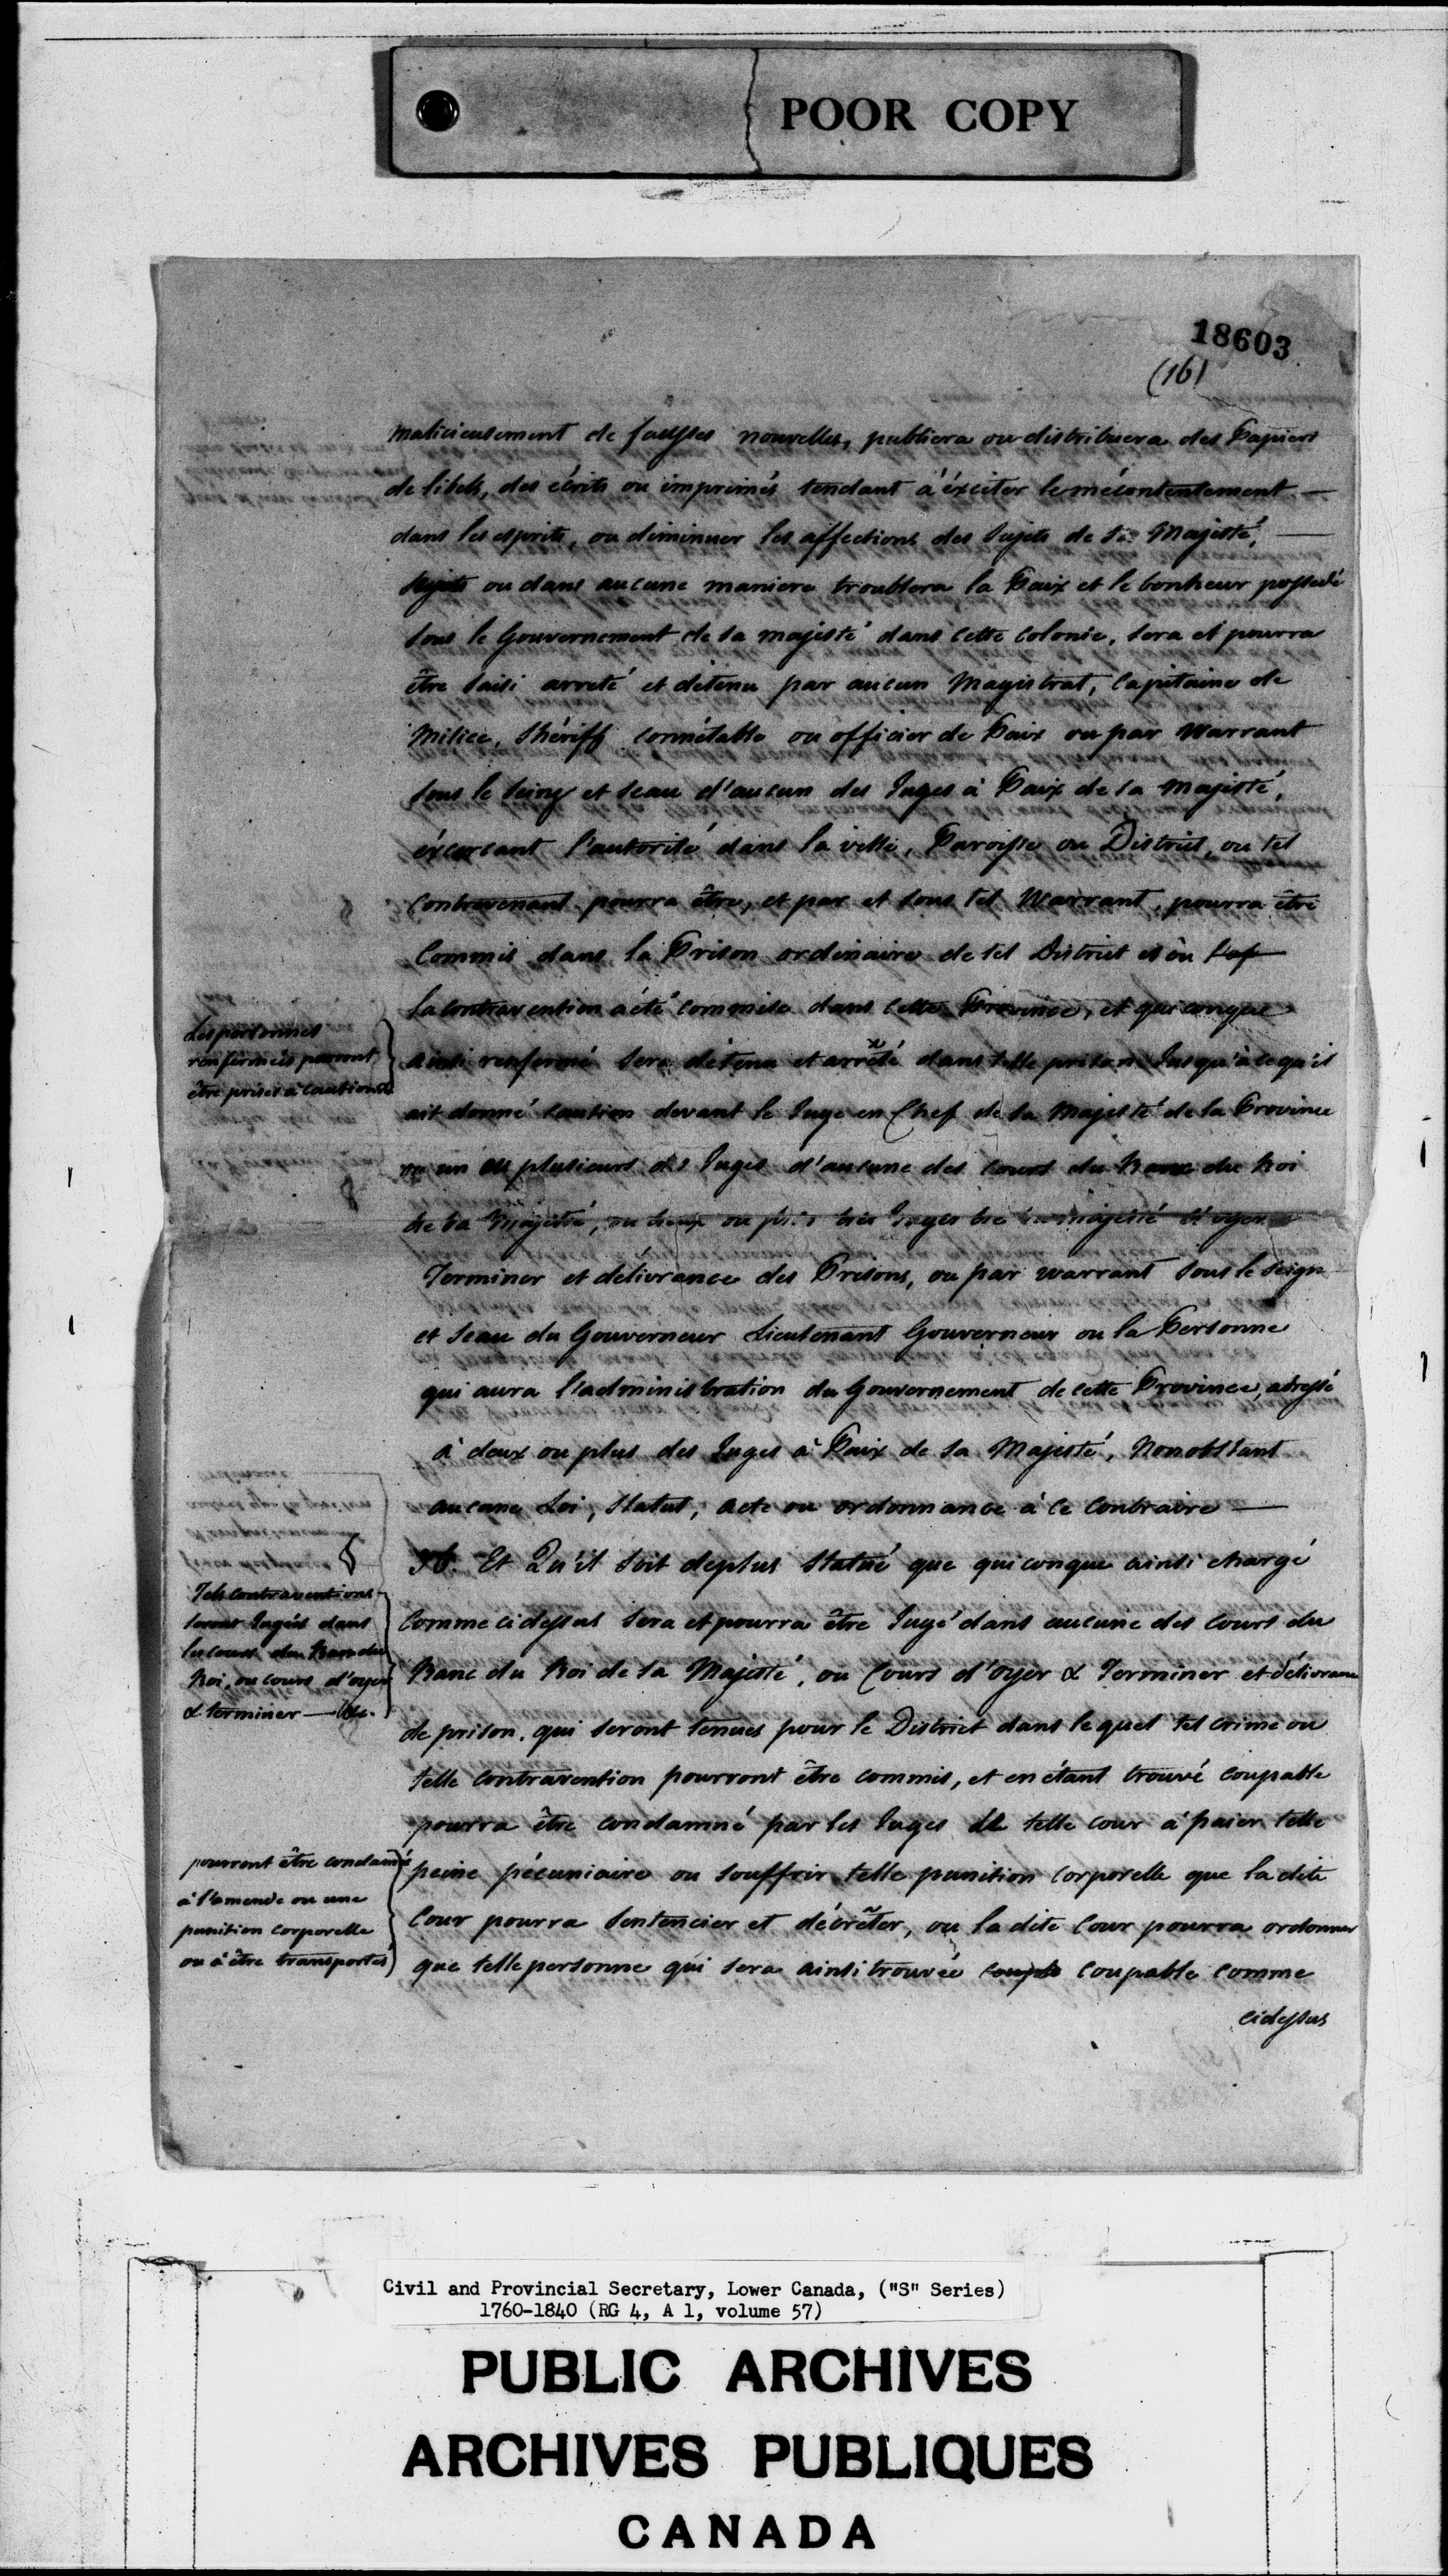 POOR COPY
18603
(16)
malicieusement de fausses nouvelles, publiera ou distribuera des Papiers
de libels, des écrits ou imprimés tendant à éxciter le mécontentement —
dans les esprits, ou diminuer les affections des Sujets de Sa Majesté, —
Sujets ou dans aucune maniere troublera la Paix et le bonheur possedé
sous le Gouvernement de sa majesté dans cette colonie, sera et pourra
être saisi arreté et détenu par aucun Magistrat, Capitaine de
Milice, Shériff connétable ou officier de Paix ou par Warrant
sous le seing et seau d'aucun des Juges à Paix de sa majesté,
éxercant l'autorité dans la ville, Paroisse ou District, ou tel
contrevenant pourra être, et par et sous tel Warrant, pourra être
Commis dans la Prison ordinaire de tel District et ou
la contravention a été commise dans cette Province, et quiconque
Les personnes
renfermées peuvent
être prises à caution
ainsi renfermé sera détenu et arrêté dans telle prison Jusqu'à ce qu'il
ait donné caution devant le Juge en Chef de sa Majesté de la Province
ou un ou plusieurs des Juges d'aucune des cours du Banc du Roi
de sa Majesté, ou deux ou plus des Juges de sa majesté d'oyer
Terminer et délivrance des Prisons, ou par warrant sous le seign
et seau du Gouverneur Lieutenant Gouverneur ou la Personne
qui aura l'administration du Gouvernement de cette Province, adressé
à deux ou plus des Juges à Paix de sa Majesté, Nonobstant
aucune Loi, Statut, acte ou ordonnance à ce contraire —
36. Et Qu'il soit deplus Statué que quiconque ainsi chargé
Tels contraventions
seront Jugées dans
les cours du Banc du
Roi, ou cours d'oyer
& terminer — &c.
Comme cidessus sera et pourra être Jugé dans aucune des cours du
Banc du Roi de sa Majesté, ou Cours d'oyer & Terminer et délivrance
de prison, qui seront tenues pour le District dans lequel tel crime ou
telle contravention pourront être commis, et en étant trouvé coupable
pourra être condamné par les Juges de telle cour à paier telle
pourront être condamné
à l'amende ou une
punition corporelle
ou à être transportés
peine pécuniaire ou souffrir telle punition corporelle que la dite
Cour pourra Sentencier et décrêter, ou la dite Cour pourra ordonner
que telle personne qui sera ainsi trouvée coupable coupable comme
cidessus
Civil and Provincial Secretary, Lower Canada, ("S" Series)
1760-1840 (RG 4, A 1, volume 57)
PUBLIC ARCHIVES
ARCHIVES PUBLIQUES
CANADA